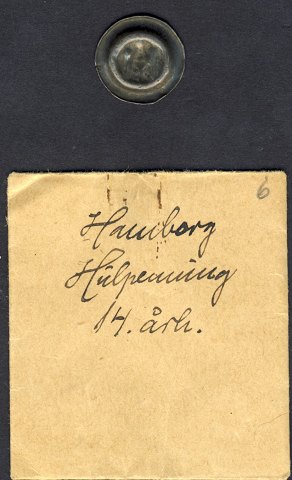 6
Hamborg
Hulpenning
14. årh.